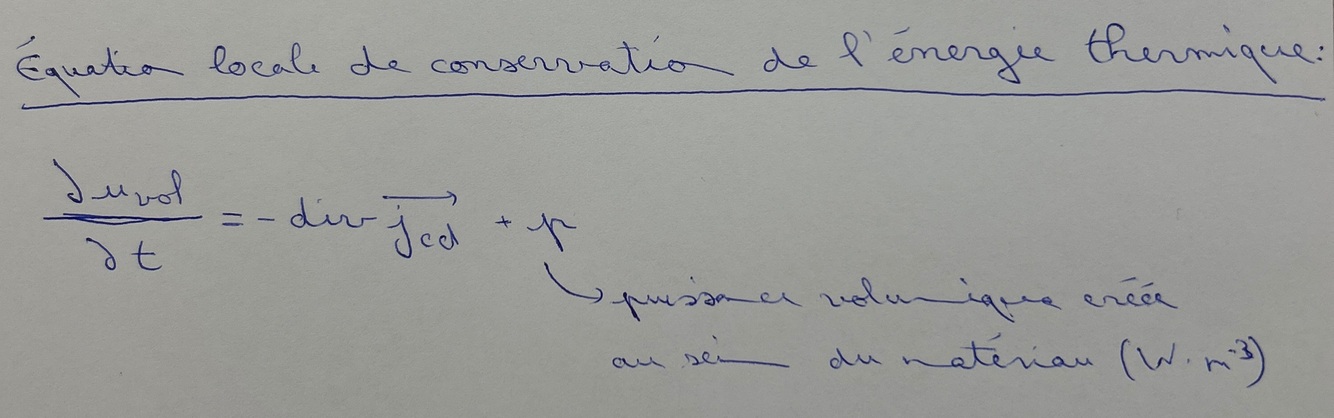 Équation locale de conservation de l'énergie thermique:
∂u_vol/∂t = - div j⃗_cd + p
↳ puissance volumique créée
au sein du matériau (W.m⁻³)